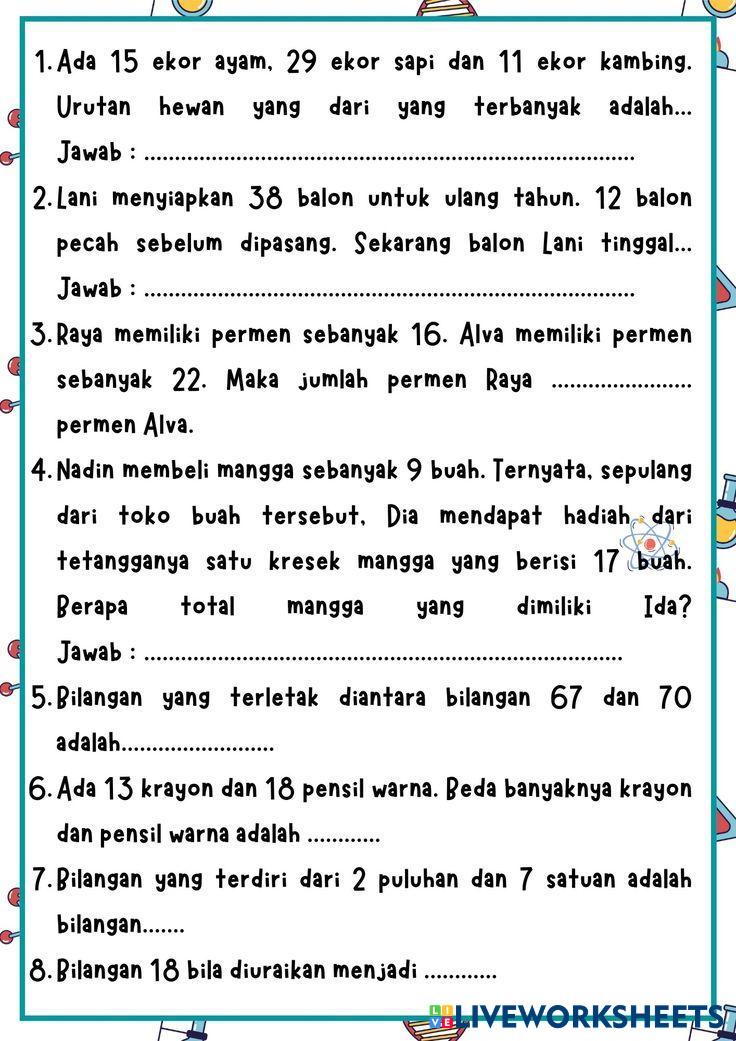 1. Ada 15 ekor ayam, 29 ekor sapi dan 11 ekor kambing.
Urutan hewan yang dari yang terbanyak adalah...
Jawab : ...............................................................................
2. Lani menyiapkan 38 balon untuk ulang tahun. 12 balon
pecah sebelum dipasang. Sekarang balon Lani tinggal...
Jawab : ...............................................................................
3. Raya memiliki permen sebanyak 16. Alva memiliki permen
sebanyak 22. Maka jumlah permen Raya .......................
permen Alva.
4. Nadin membeli mangga sebanyak 9 buah. Ternyata, sepulang
dari toko buah tersebut, Dia mendapat hadiah dari
tetangganya satu kresek mangga yang berisi 17 buah.
Berapa total mangga yang dimiliki Ida?
Jawab : .............................................................................
5. Bilangan yang terletak diantara bilangan 67 dan 70
adalah.........................
6. Ada 13 krayon dan 18 pensil warna. Beda banyaknya krayon
dan pensil warna adalah ............
7. Bilangan yang terdiri dari 2 puluhan dan 7 satuan adalah
bilangan.......
8. Bilangan 18 bila diuraikan menjadi ............
LIVE LIVEWORKSHEETS